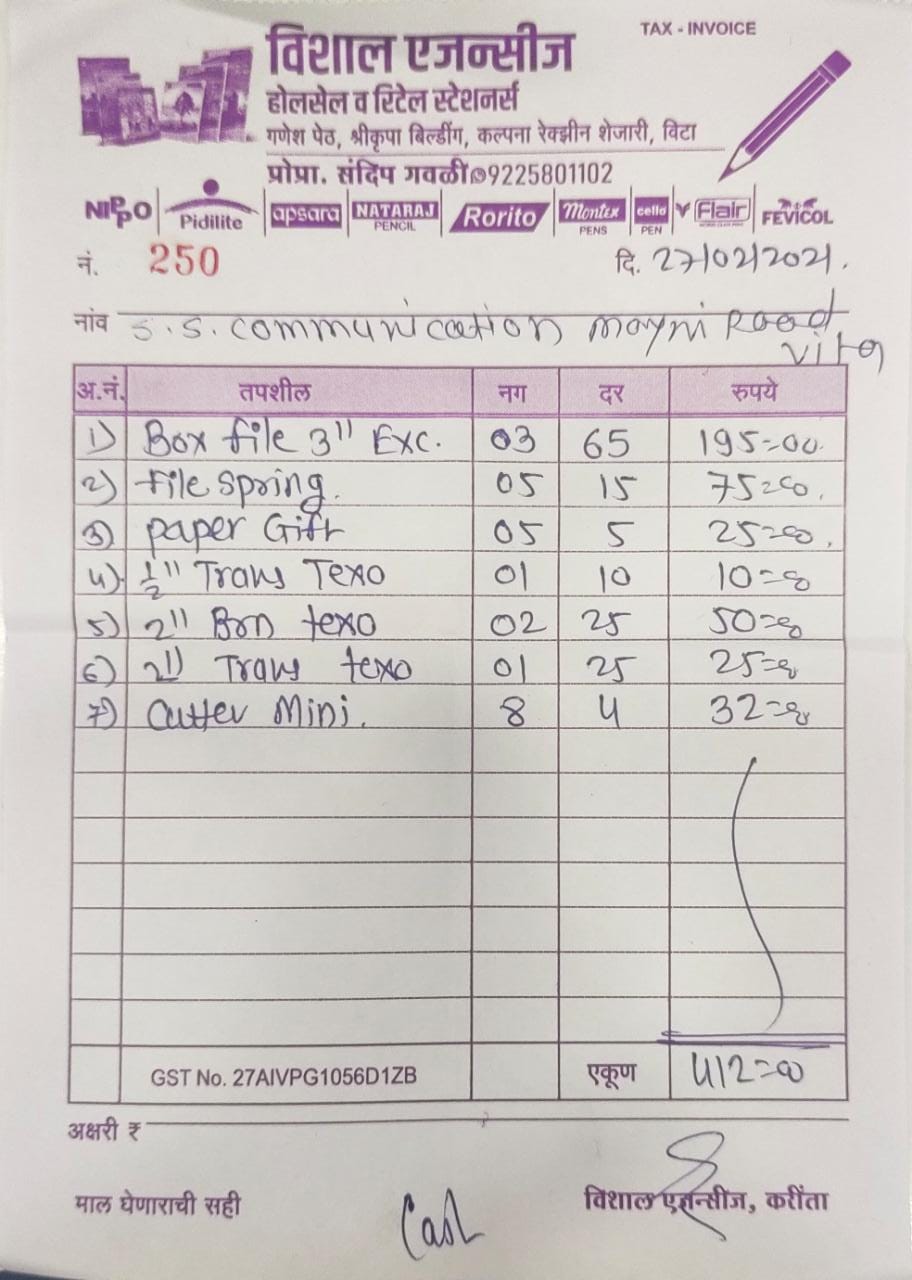 TAX - INVOICE
विशाल एजन्सीज
होलसेल व रिटेल स्टेशनर्स
गणेश पेठ, श्रीकृपा बिल्डींग, कल्पना रेक्झीन शेजारी, विटा
प्रोप्रा. संदिप गवळी 9225801102
NIPPO Pidilite apsara NATARAJ PENCIL Rorito Montex PENS cello PEN Flair FEVICOL
नं. 250 दि. 27/02/2021.
नांव S.S. Communication mayni Road
vita
अ.नं. तपशील नग दर रुपये
1) Box file 3" Exc. 03 65 195=00
2) file spring. 05 15 75=00.
3) paper Gift 05 5 25=00.
4) ½" Trans Texo 01 10 10=00
5) 2" Brn texo 02 25 50=00
6) 2" Trans texo 01 25 25=00
7) Cutter Mini. 8 4 32=00
GST No. 27AIVPG1056D1ZB एकूण 412=00
अक्षरी ₹
माल घेणाराची सही Cash विशाल एजन्सीज, करींता